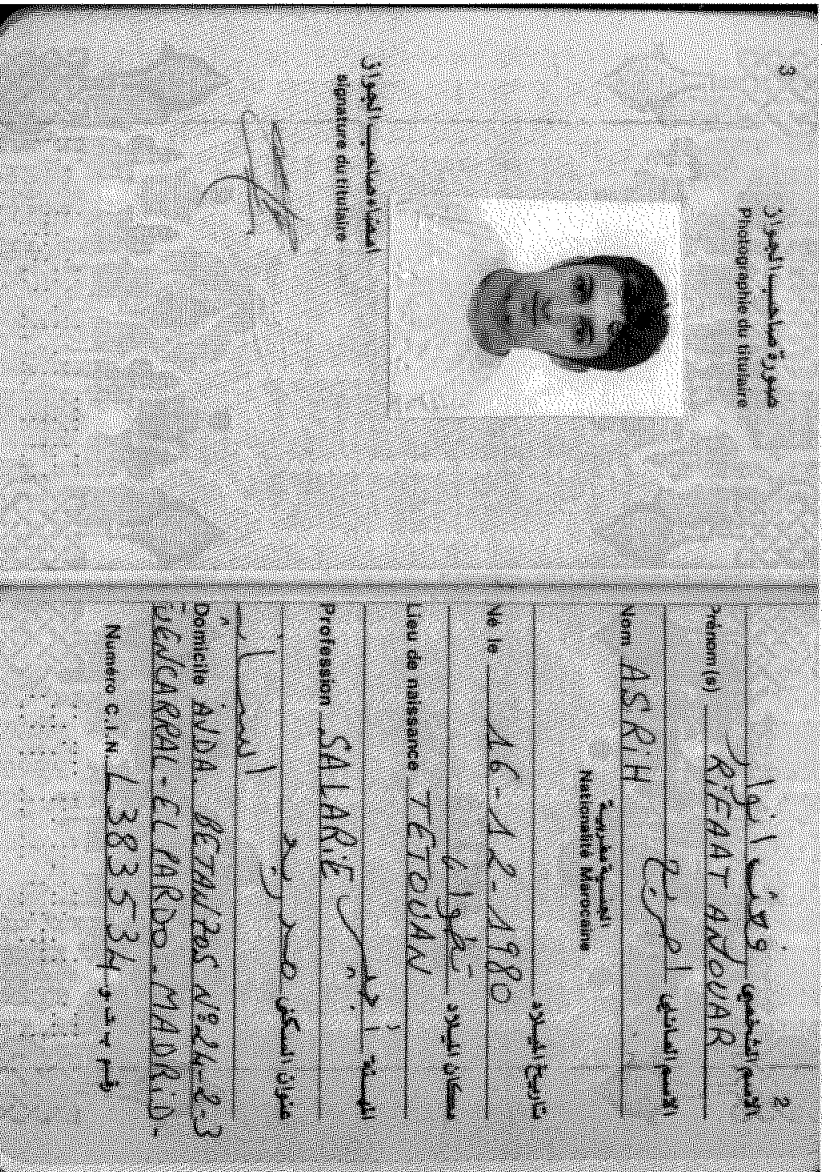 2
الاسم الشخصي رفعت انوار
Prénom(s) RiFAAT ANOUAR
الاسم العائلي اصريح
Nom ASRiH
الجنسية مغربية
Nationalité Marocaine
تاريخ الميلاد
Né le 16-12-1980
مكان الميلاد تطوان
Lieu de naissance TETOUAN
المهنة أجير
Profession SALARiE
عنوان السكنى مدريد
اسبانيا
Domicile AVDA BETANZOS Nº24-2-3
FUENCARRAL-EL PARDO. MADRiD-
Numéro C.I.N. L383534 رقم ب.ت.و.
3
صورة صاحب الجواز
Photographie du titulaire
امضاء صاحب الجواز
signature du titulaire